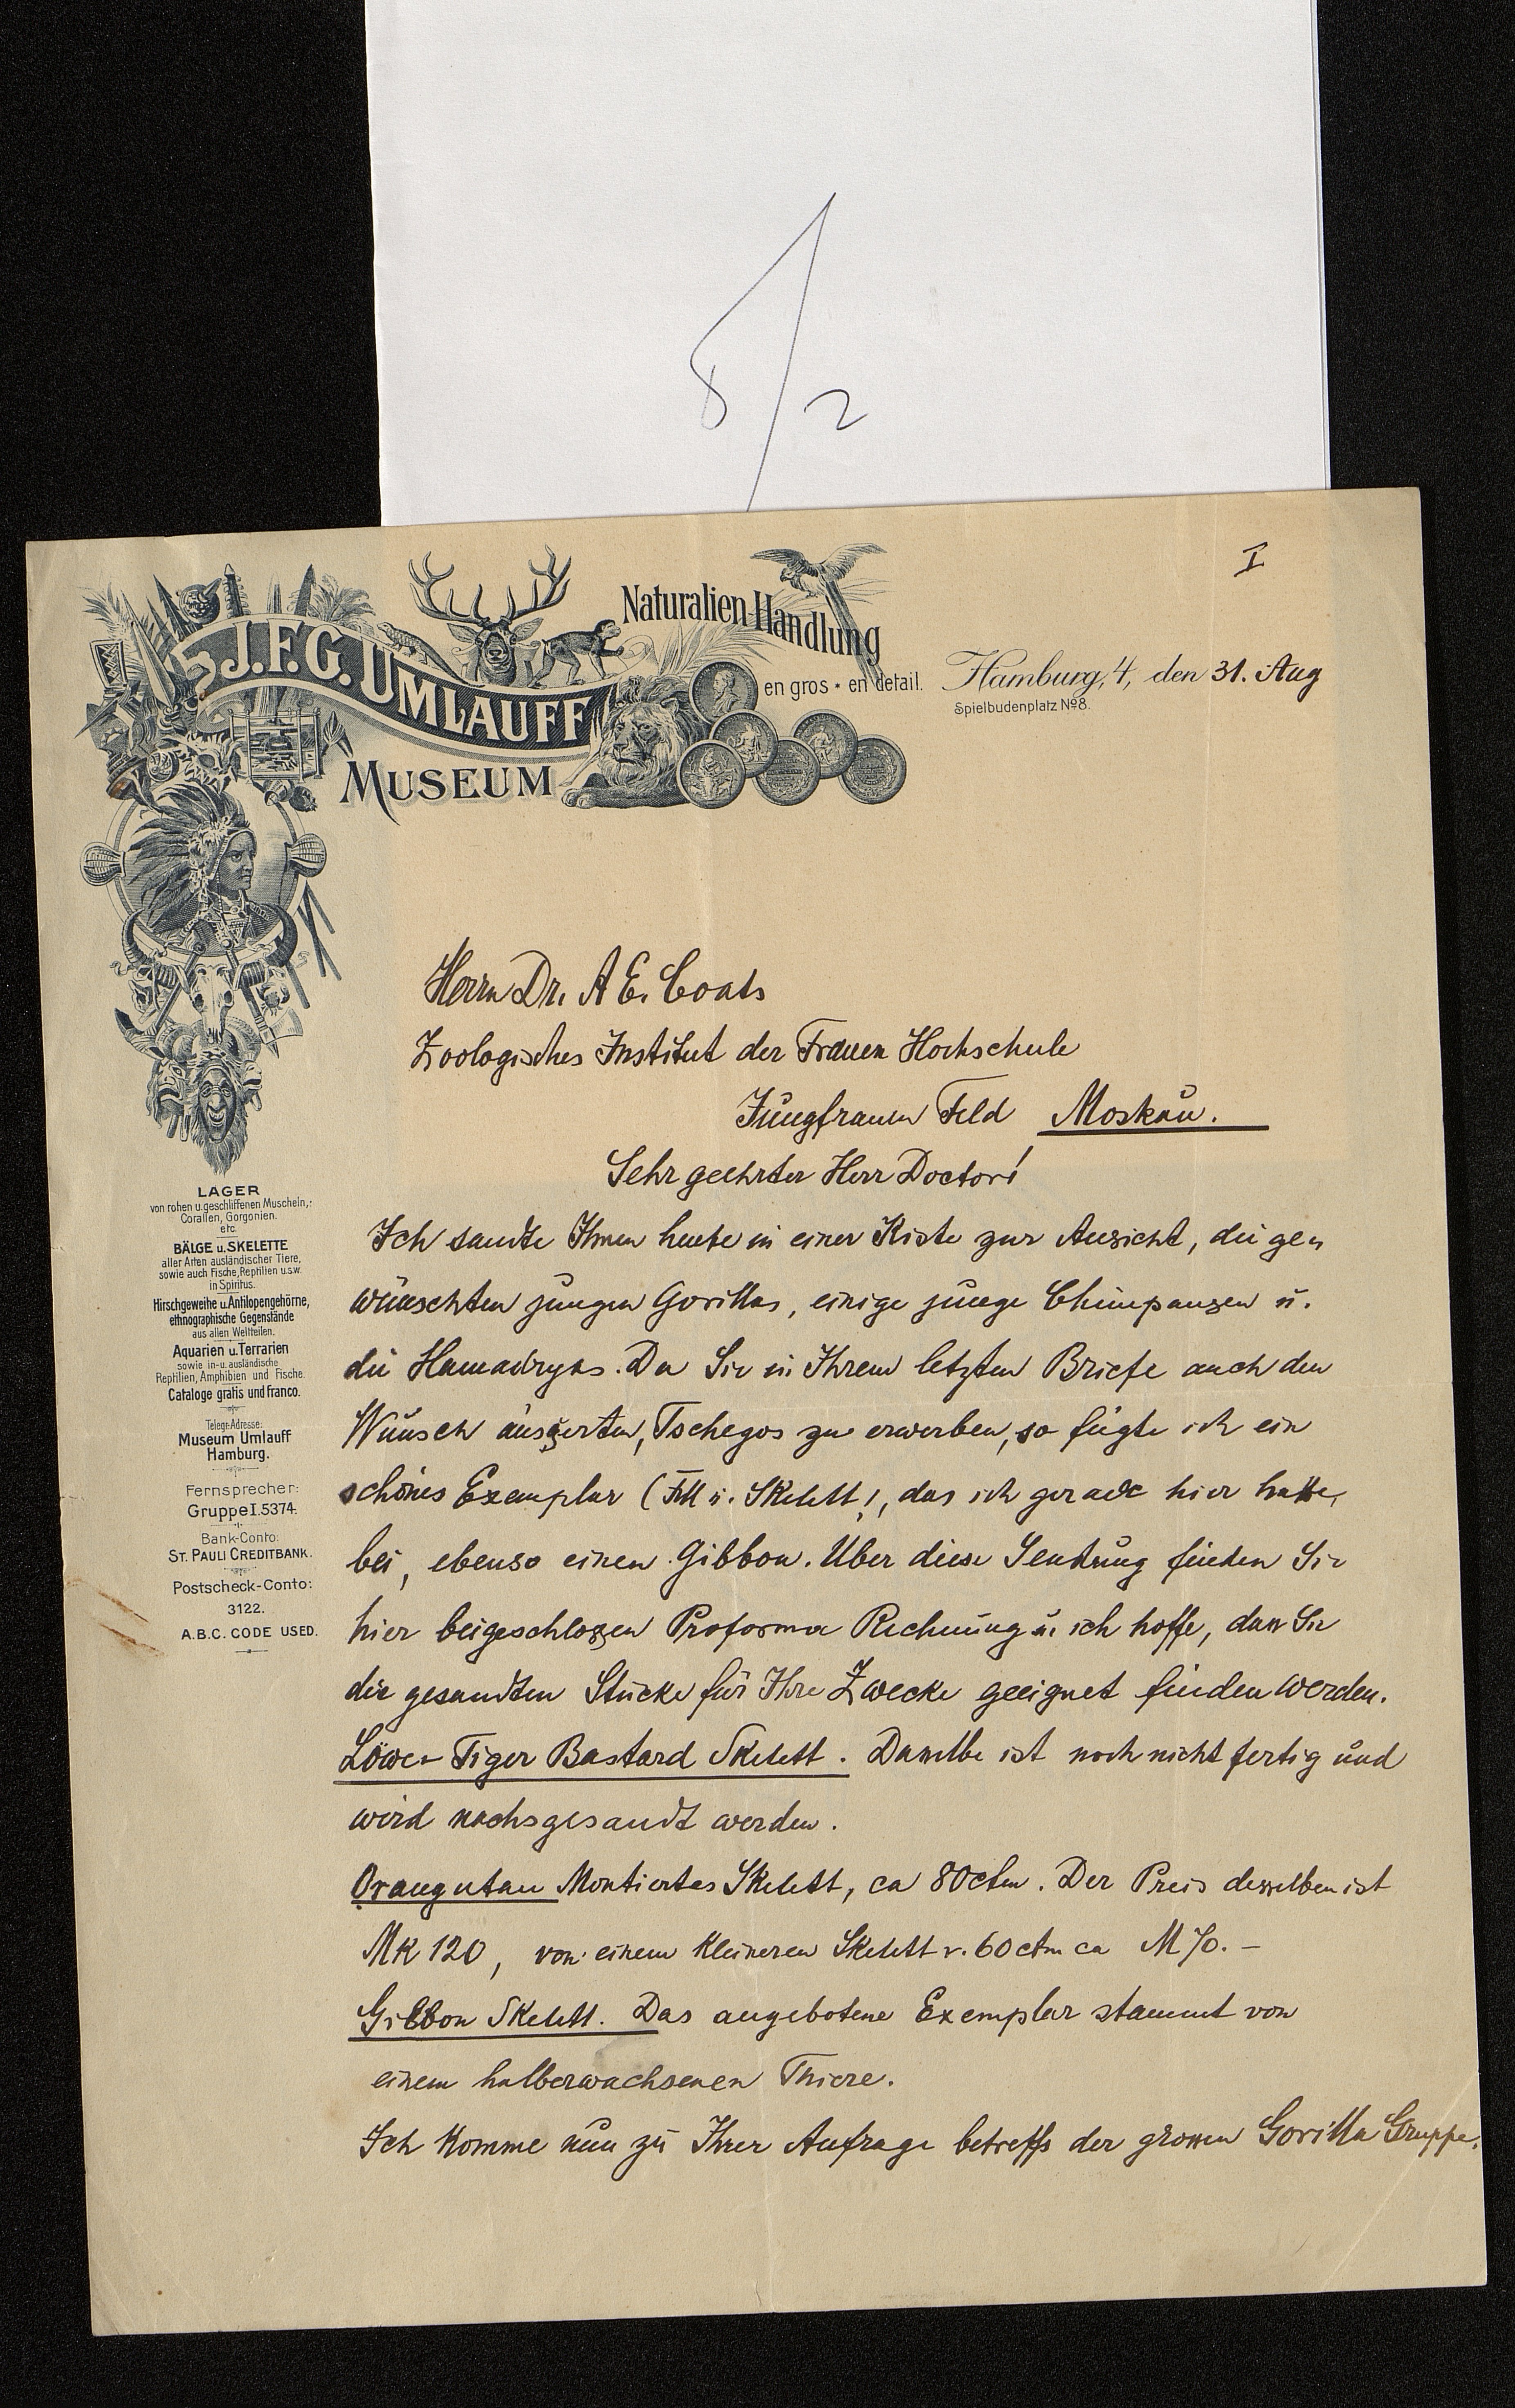 8/2
I
J.F.G. UMLAUFF
MUSEUM
Naturalien-Handlung
en gros • en detail.
Hamburg, 4, den 31. Aug
Spielbudenplatz No 8.
Herrn Dr. A E. Coats
Zoologisches Institut der Frauen Hochschule
Jungfrauen Feld Moskau.
Sehr geehrter Herr Doctor!
Ich sandte Ihnen heute in einer Kiste zur Ansicht, die ge=
wünschten jungen Gorillas, einige junge Chimpansen u.
die Hamadryas. Da Sie in Ihrem letzten Briefe auch den
Wunsch äusserten, Tschegos zu erwerben, so fügte ich ein
schönes Exemplar (Fell u. Skelett), das ich gerade hier hatte,
bei, ebenso einen Gibbon. Über diese Sendung finden Sie
hier beigeschlossen Proforma Rechnung u. ich hoffe, dass Sie
die gesandten Stücke für Ihre Zwecke geeignet finden werden.
Löwe- Tiger Bastard Skelett. Dasselbe ist noch nicht fertig und
wird nachgesandt werden.
Orangutan Montiertes Skelett, ca 80 ctm. Der Preis desselben ist
MK 120, von einem kleineren Skelett v. 60 ctm ca M 70.–
Gibbon Skelett. Das angebotene Exemplar stammt von
einem halberwachsenen Thiere.
Ich komme nun zu Ihrer Anfrage betreffs der grossen Gorilla Gruppe.
LAGER
von rohen u. geschliffenen Muscheln,
Corallen, Gorgonien.
etc.
BÄLGE u. SKELETTE
aller Arten ausländischer Tiere,
sowie auch Fische, Reptilien u.s.w.
in Spiritus.
Hirschgeweihe u. Antilopengehörne,
ethnographische Gegenstände
aus allen Weltteilen.
Aquarien u. Terrarien
sowie in- u. ausländische
Reptilien, Amphibien und Fische.
Cataloge gratis und franco.
Telegr.-Adresse:
Museum Umlauff
Hamburg.
Fernsprecher:
Gruppe I. 5374.
Bank-Conto:
ST. PAULI CREDITBANK.
Postscheck-Conto:
3122.
A.B.C. CODE USED.